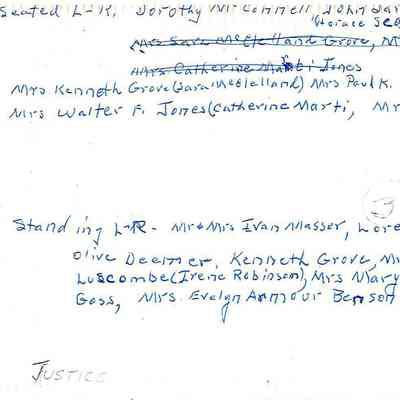 Seated L-R. Dorothy McConnell John
Horace
Mrs Sara McClelland Grove, M
Mrs Catherine Marti Jones
Mrs Kenneth Grove (Sara McClelland) Mrs Paul K.
Mrs Walter F. Jones (Catherine Marti, Mr
3
Standing L-R - Mr & Mrs Ivan Masser, Lore
Olive Deemer, Kenneth Grove, M
Luscombe (Irene Robinson), Mrs Mary
Goss, Mrs. Evelyn Armour Benson
JUSTICE